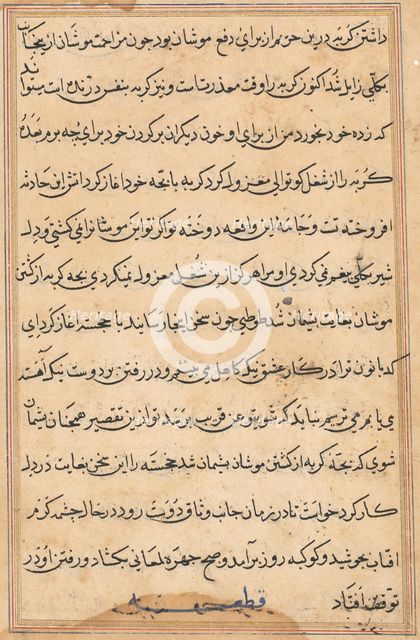 داشتن گربه درین حریم از برای دفع موشان بود چون مزاحمت موشان از یخانه
بکلی زایل شد اکنون گربه را وقت معذرتست و نیز گربه بنفس درنده است میتواند
که زده خود بخورد من از برای او خون دیگران بر گردن خود برای چه برم بعده
گربه را از شغل کوتوالی معزول کرد گربه با بچه خود اغاز کرد اتش این حادثه
افروخته تست و جامهٔ این واقعه دوخته تو اگر تو این موشانرا نمی کشتی و دل
شیر بکلی بیغم نمی کردی او مرا هرگز ازین شغل معزول نمیکردی بچه گربه از کشتن
موشان بغایت پشیمان شد طوطی چون سخن اینجا رسانید با خجسته اغاز کرد ای
کدبانو من ترا در کار عشق نیک کاهل می بینم و در رفتن بر دوست نیک آهسته
می یابم می ترسم نباید که شوی تو عن قریب برسد تو ازین تقصیر همچنان پشیمان
شوی که بچه گربه از کشتن موشان پشیمان شد خجسته را این سخن بغایت در دل
کار کرد خواست تا در زمان جانب وثاق دوست رود در حال چشمه گرم
افتاب بجوشید و کوکبه روز برآمد و صبح چهره لمعانی بکشاد و رفتن او در
توقف افتاد
قطعه
Heritage
Heritage